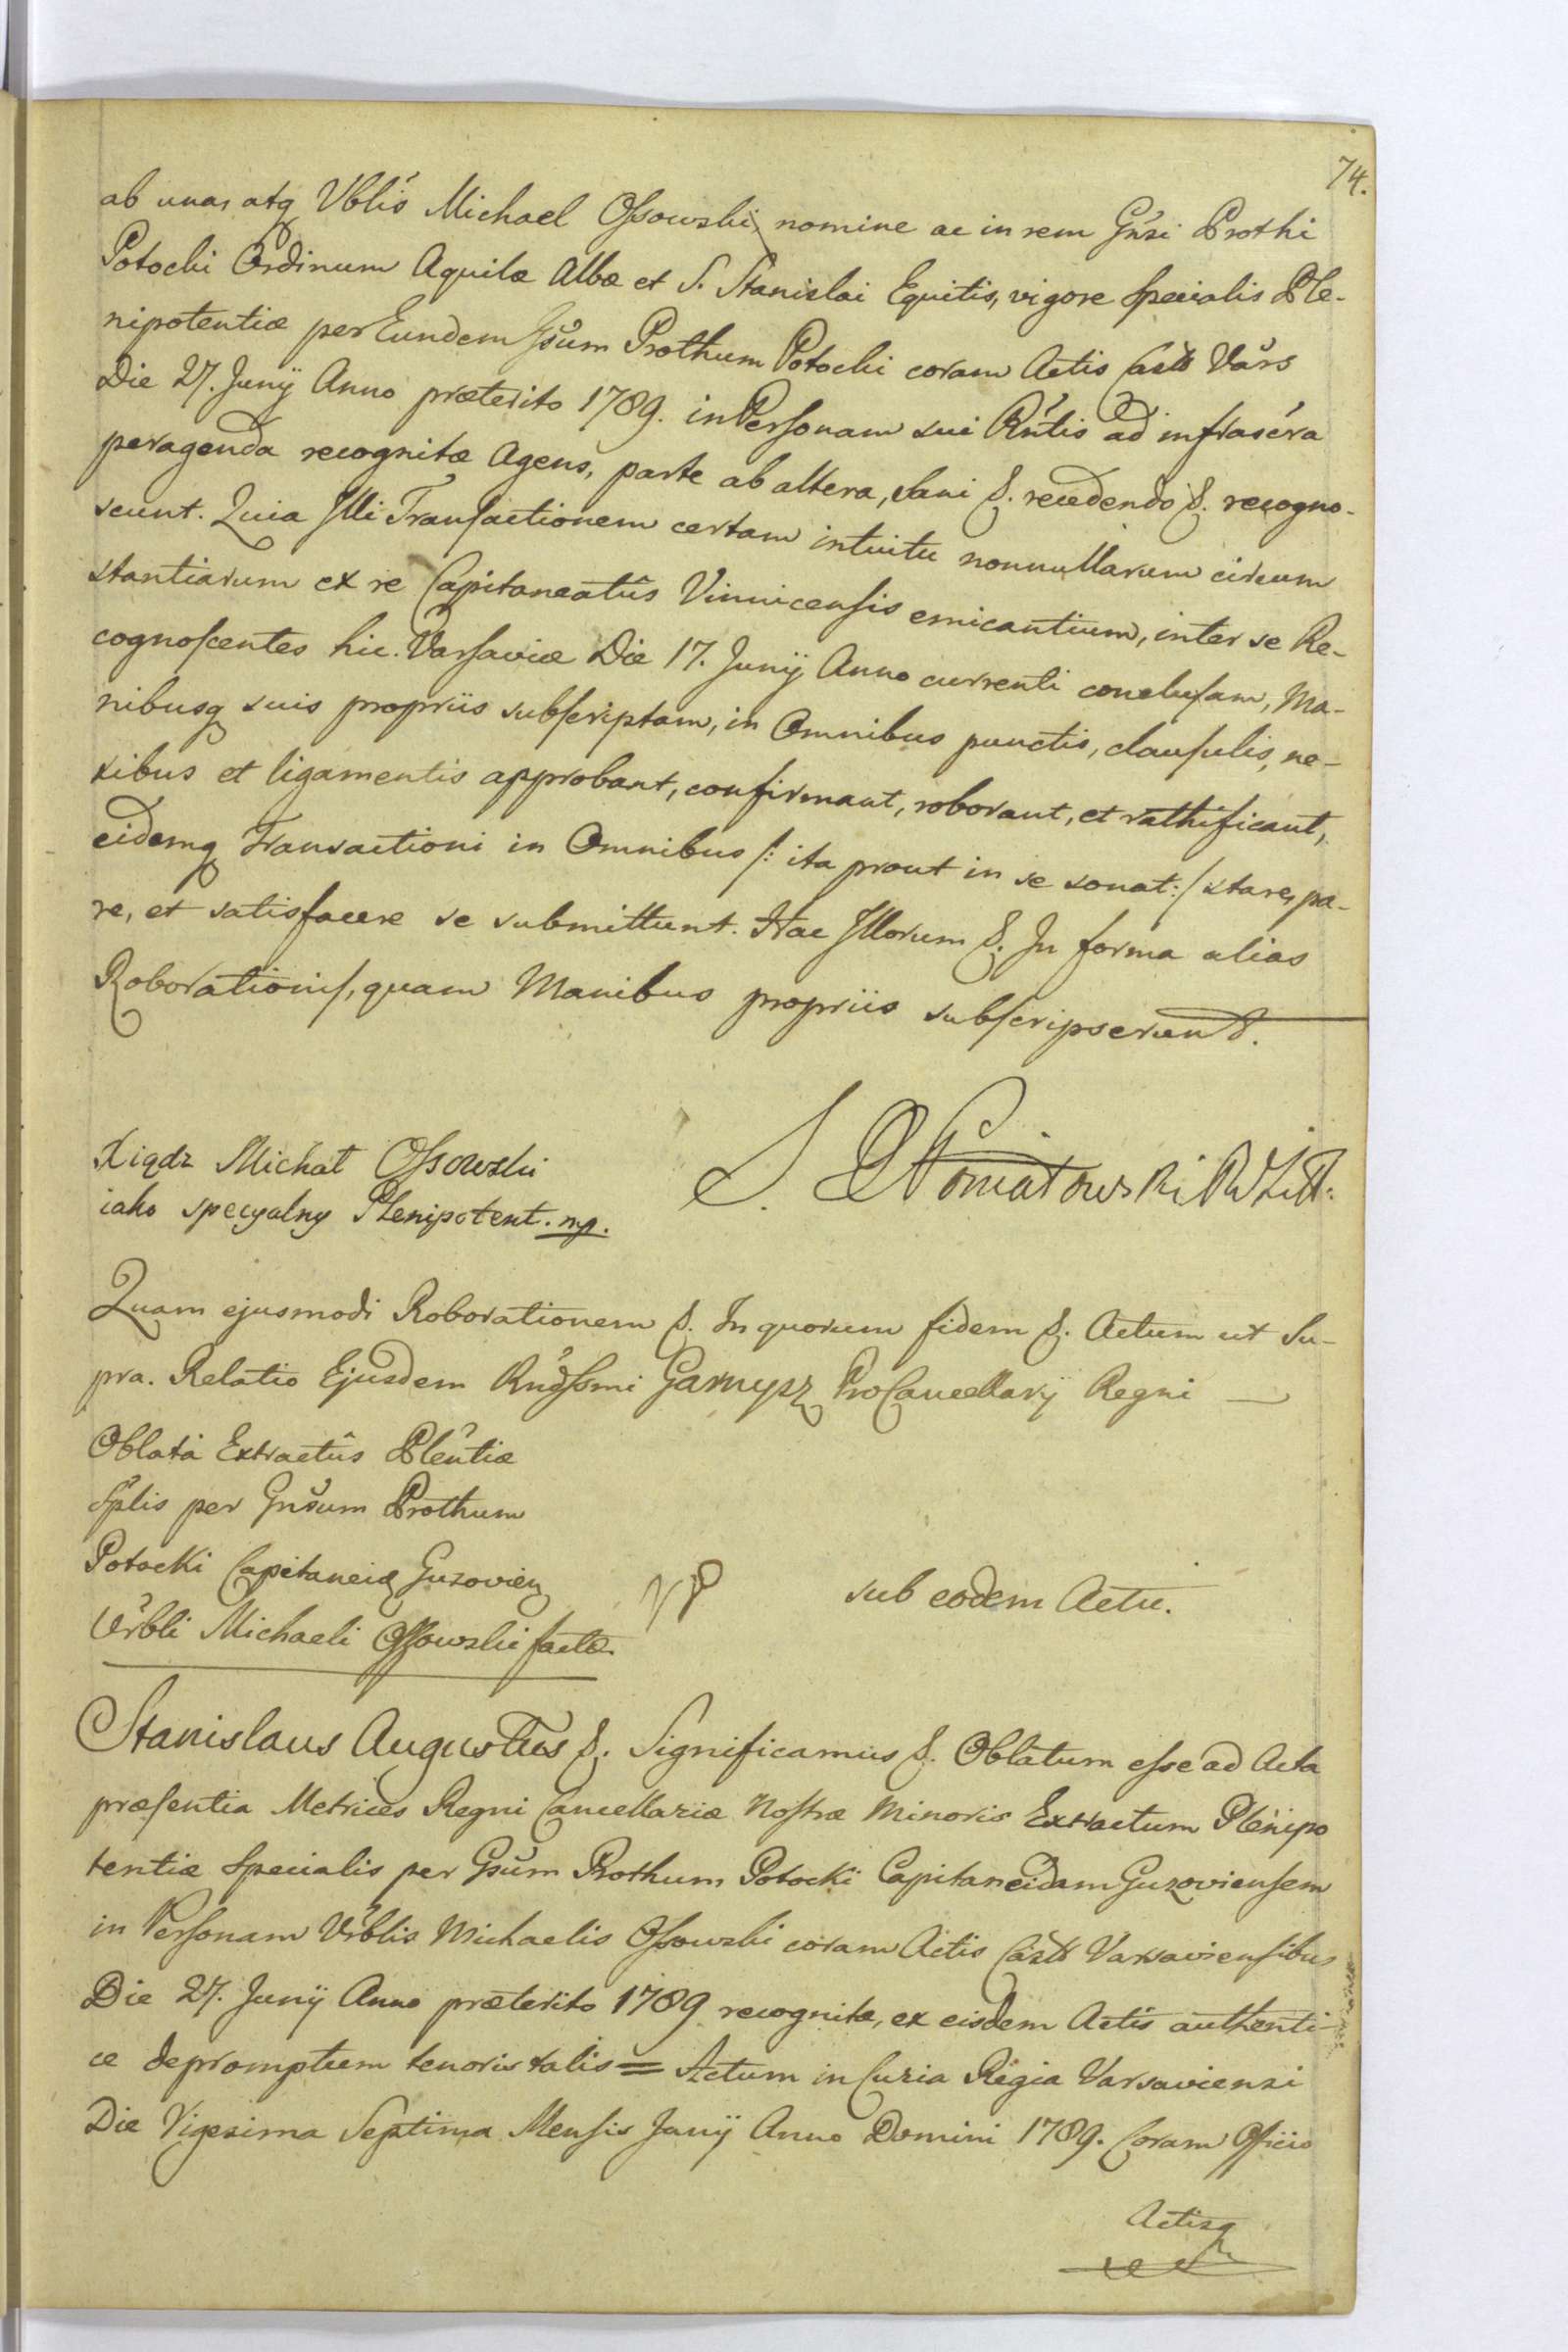 74.
ab una, atq Vblis Michael Ossowski nomine ac in rem Gnsi Prothi
Potocki Ordinum Aquilæ Albæ et S. Stanislai Equitis, vigore specialis Ple-
nipotentiæ per Eundem Gsum Prothum Potocki coram Actis Castr Vars
Die 27. Junÿ Anno præterito 1789. in Personam sui Rntis ad infrascra
peragenda recognitæ Agens, parte ab altera, sani &. recedendo &. recogno-
scunt. Quia Illi Transactionem certam intuitu nonnullarum circum
stantiarum ex re Capitaneatûs Vinnicensis emicantium, inter se Re-
cognoscentes hic. Varsaviæ Die 17. Junÿ Anno currenti conclusam, Ma-
nibusq suis propriis subscriptam, in Omnibus punctis, clausulis, ne-
xibus et ligamentis approbant, confirmant, roborant, et rathificant,
eidemq Transactioni in Omnibus /: ita prout in se sonat :/ stare, pa-
re, et satisfacere se submittunt. Hac Illorum &. In forma alias
Roborationis, quam Manibus propriis subscripserunt.
Xiądz Michał Ossowski
iako specyalny Plenipotent. mp.
S. Poniatowski
Quam ejusmodi Roborationem &. In quorum fidem &. Actum ut Su-
pra. Relatio Ejusdem Rndssmi Garnysz ProCancellarÿ Regni —
Oblata Extractûs Plentiæ
Splis per Gnsum Prothum
Potocki Capitaneid Guzovien
Vrbli Michaeli Ossowski factæ
sub eodem Actu.
Stanislaus Augustus &. Significamus &. Oblatum esse ad Acta
præsentia Metrices Regni Cancellariæ Nostræ Minoris Extractum Plenipo
tentiæ specialis per Gsum Prothum Potocki Capitaneidam Guzoviensem
in Personam Vrblis Michaelis Ossowski coram Actis Castr Varsaviensibus
Die 27. Junÿ Anno præterito 1789 recognitæ, ex eisdem Actis authenti-
ce depromptum tenoris talis = Actum in Curia Regia Varsaviensi
Die Vigesima Septima Mensis Junÿ Anno Domini 1789. Coram Officio
Actisq